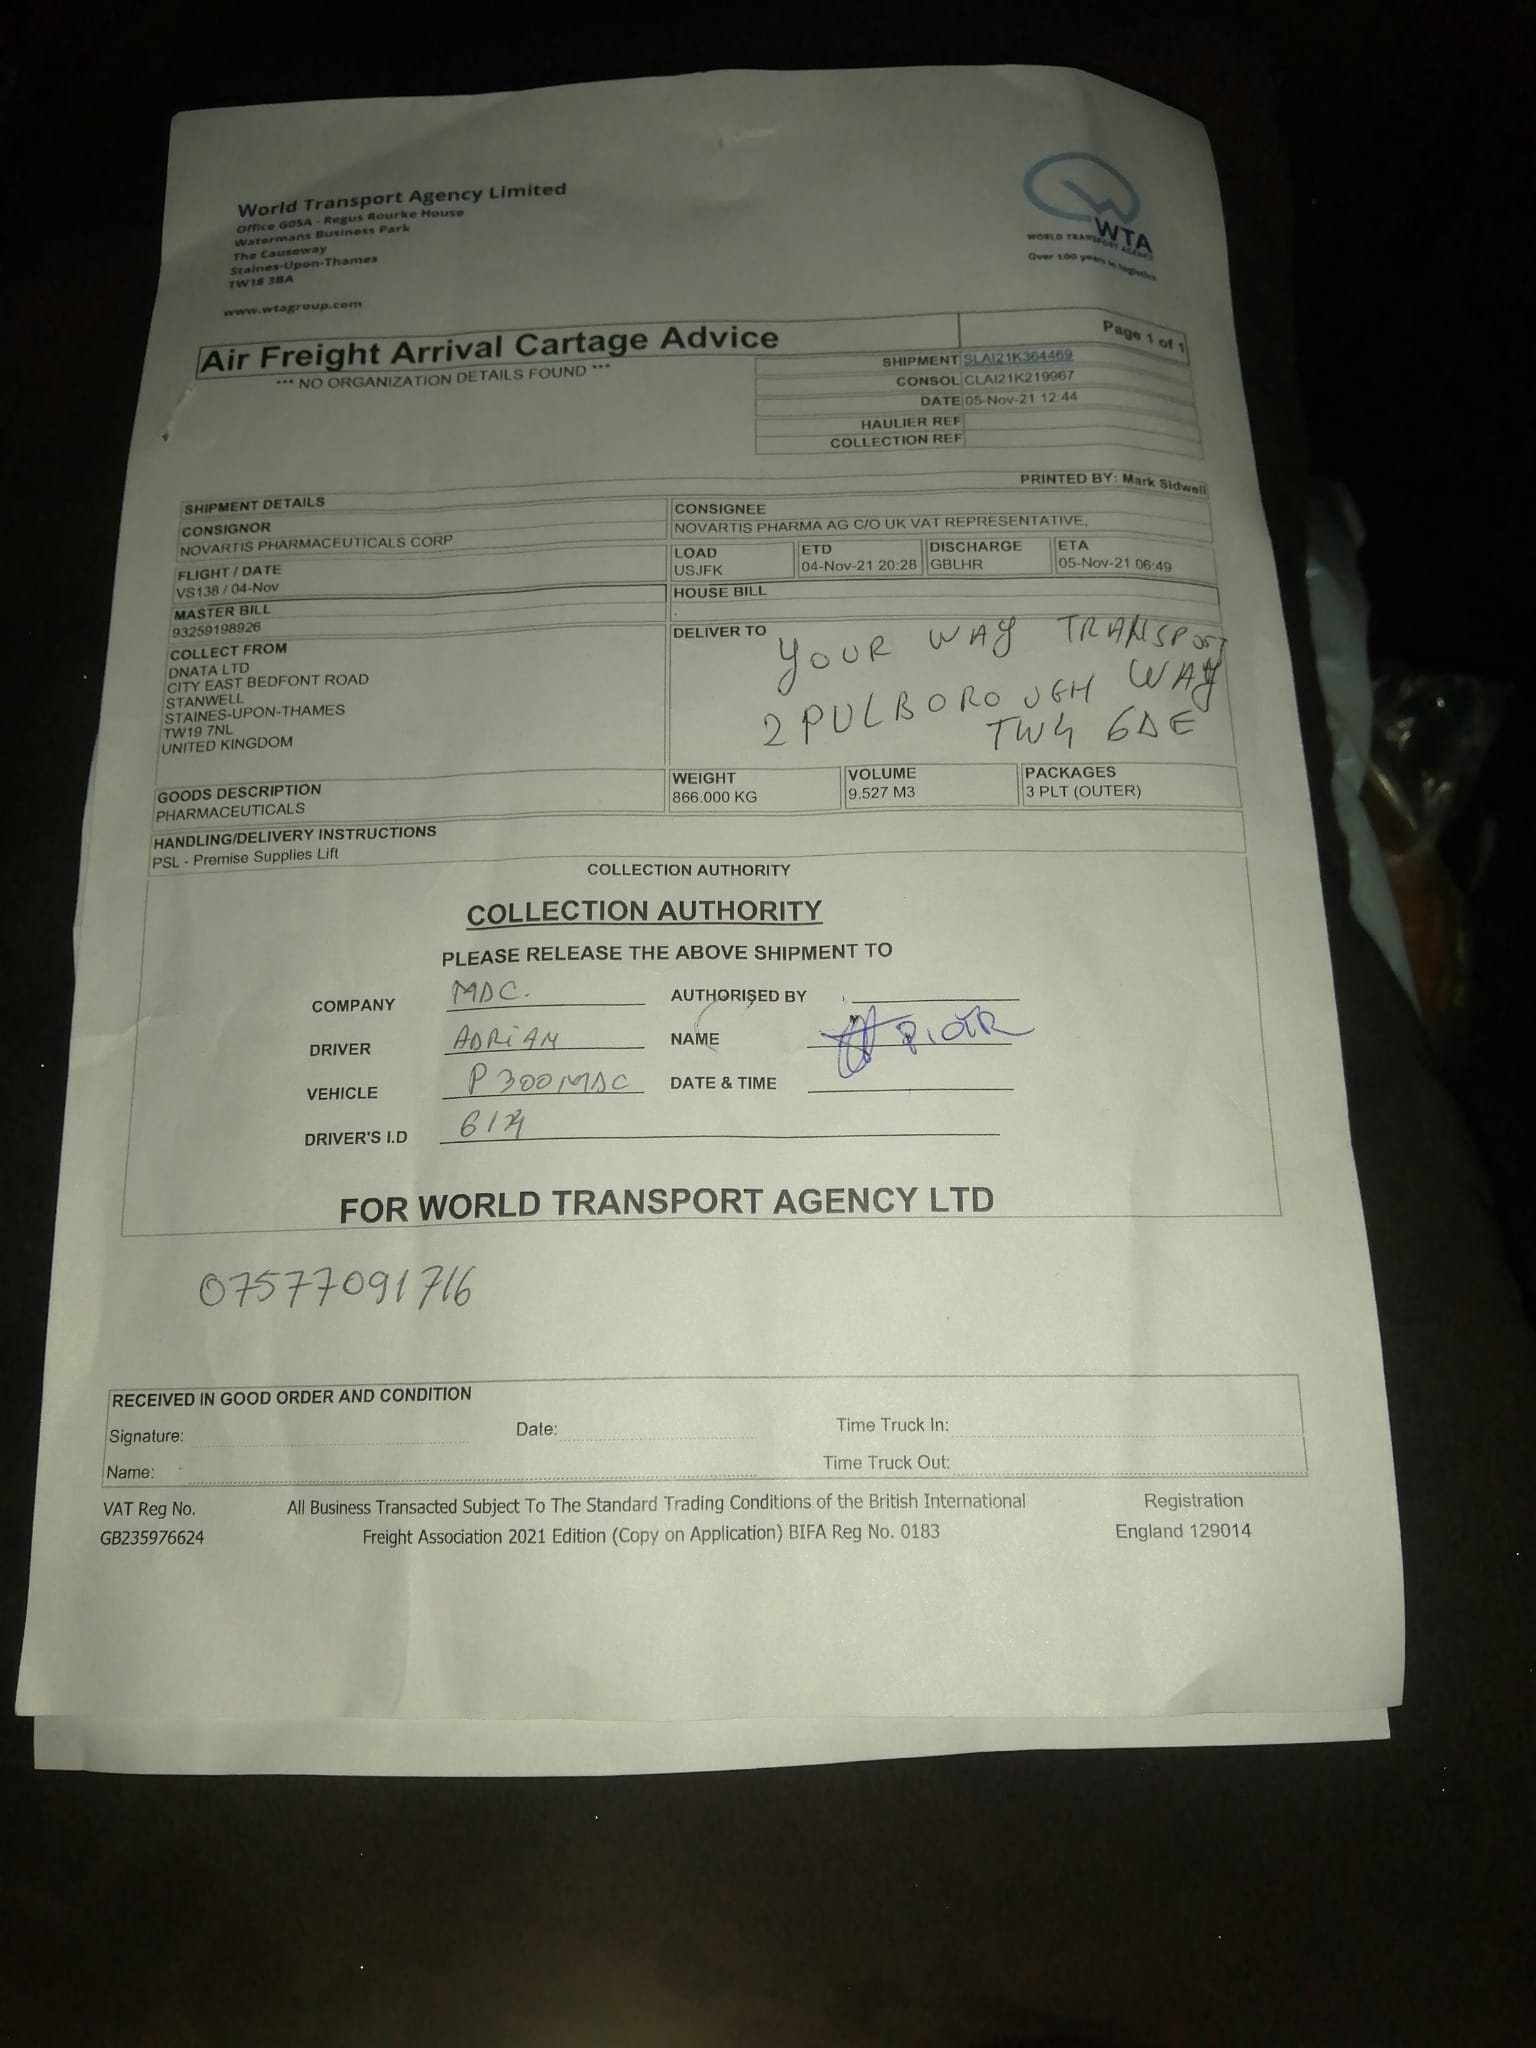 World Transport Agency Limited
Office G05A - Regus Rourke House
Watermans Business Park
The Causeway
Staines-Upon-Thames
TW18 3BA
www.wtagroup.com
WTA
WORLD TRANSPORT AGENCY
Over 100 years in logistics
Air Freight Arrival Cartage Advice
Page 1 of 1
*** NO ORGANIZATION DETAILS FOUND ***
SHIPMENT SLAI21K364469
CONSOL CLAI21K219967
DATE 05-Nov-21 12:44
HAULIER REF
COLLECTION REF
PRINTED BY: Mark Sidwell
SHIPMENT DETAILS
CONSIGNOR
NOVARTIS PHARMACEUTICALS CORP
CONSIGNEE
NOVARTIS PHARMA AG C/O UK VAT REPRESENTATIVE,
FLIGHT / DATE
VS138 / 04-Nov
LOAD
USJFK
ETD
04-Nov-21 20:28
DISCHARGE
GBLHR
ETA
05-Nov-21 06:49
MASTER BILL
93259198926
HOUSE BILL
.
COLLECT FROM
DNATA LTD
CITY EAST BEDFONT ROAD
STANWELL
STAINES-UPON-THAMES
TW19 7NL
UNITED KINGDOM
DELIVER TO
YOUR WAY TRANSPORT
2 PULBOROUGH WAY
TW4 6DE
GOODS DESCRIPTION
PHARMACEUTICALS
WEIGHT
866.000 KG
VOLUME
9.527 M3
PACKAGES
3 PLT (OUTER)
HANDLING/DELIVERY INSTRUCTIONS
PSL - Premise Supplies Lift
COLLECTION AUTHORITY
COLLECTION AUTHORITY
PLEASE RELEASE THE ABOVE SHIPMENT TO
COMPANY MDC. AUTHORISED BY
DRIVER ADRIAN NAME PIOTR
VEHICLE P300MDC DATE & TIME
DRIVER'S I.D
FOR WORLD TRANSPORT AGENCY LTD
07577091716
RECEIVED IN GOOD ORDER AND CONDITION
Signature: Date: Time Truck In:
Name: Time Truck Out:
VAT Reg No. All Business Transacted Subject To The Standard Trading Conditions of the British International Registration
GB235976624 Freight Association 2021 Edition (Copy on Application) BIFA Reg No. 0183 England 129014